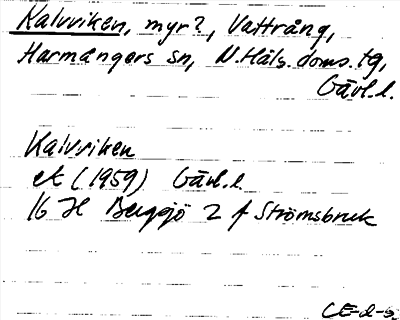 Kalvviken, myr?, Vattrång,
Harmångers sn, N. Häls. doms. tg,
Gävl. l.
Kalvviken
ek (1959) Gävl. l.
16 H Bergsjö 2 f Strömsbruk